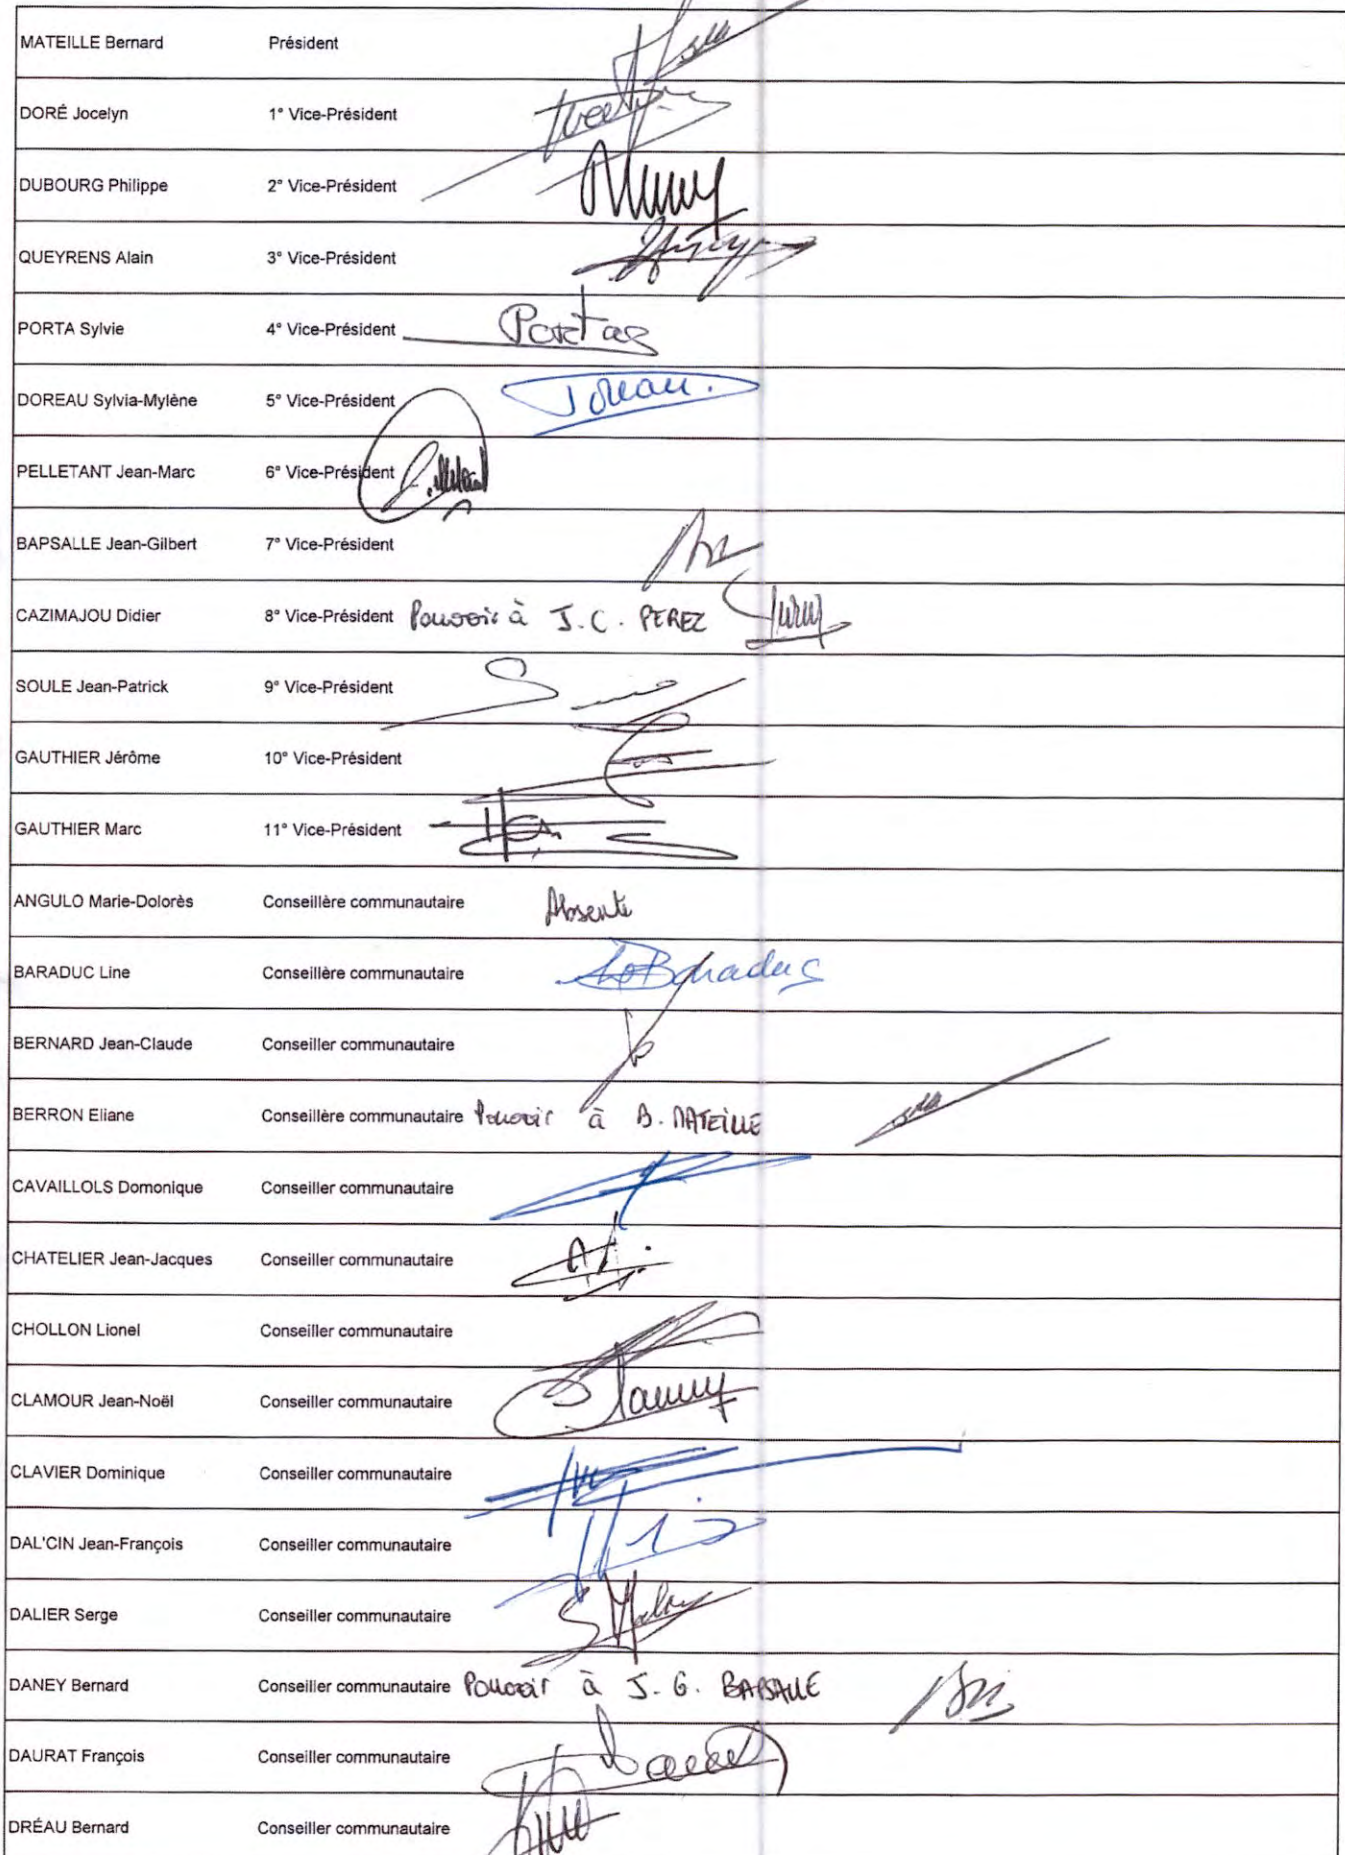 MATEILLE Bernard Président
DORÉ Jocelyn 1° Vice-Président
DUBOURG Philippe 2° Vice-Président
QUEYRENS Alain 3° Vice-Président
PORTA Sylvie 4° Vice-Président Porta
DOREAU Sylvia-Mylène 5° Vice-Président Doreau.
PELLETANT Jean-Marc 6° Vice-Président
BAPSALLE Jean-Gilbert 7° Vice-Président
CAZIMAJOU Didier 8° Vice-Président Pouvoir à J.C. PEREZ
SOULE Jean-Patrick 9° Vice-Président
GAUTHIER Jérôme 10° Vice-Président
GAUTHIER Marc 11° Vice-Président
ANGULO Marie-Dolorès Conseillère communautaire Absente
BARADUC Line Conseillère communautaire Baraduc
BERNARD Jean-Claude Conseiller communautaire
BERRON Eliane Conseillère communautaire Pouvoir à B. MATEILLE
CAVAILLOLS Domonique Conseiller communautaire
CHATELIER Jean-Jacques Conseiller communautaire
CHOLLON Lionel Conseiller communautaire
CLAMOUR Jean-Noël Conseiller communautaire
CLAVIER Dominique Conseiller communautaire
DAL'CIN Jean-François Conseiller communautaire
DALIER Serge Conseiller communautaire
DANEY Bernard Conseiller communautaire Pouvoir à J.G. BAPSALLE
DAURAT François Conseiller communautaire
DRÉAU Bernard Conseiller communautaire